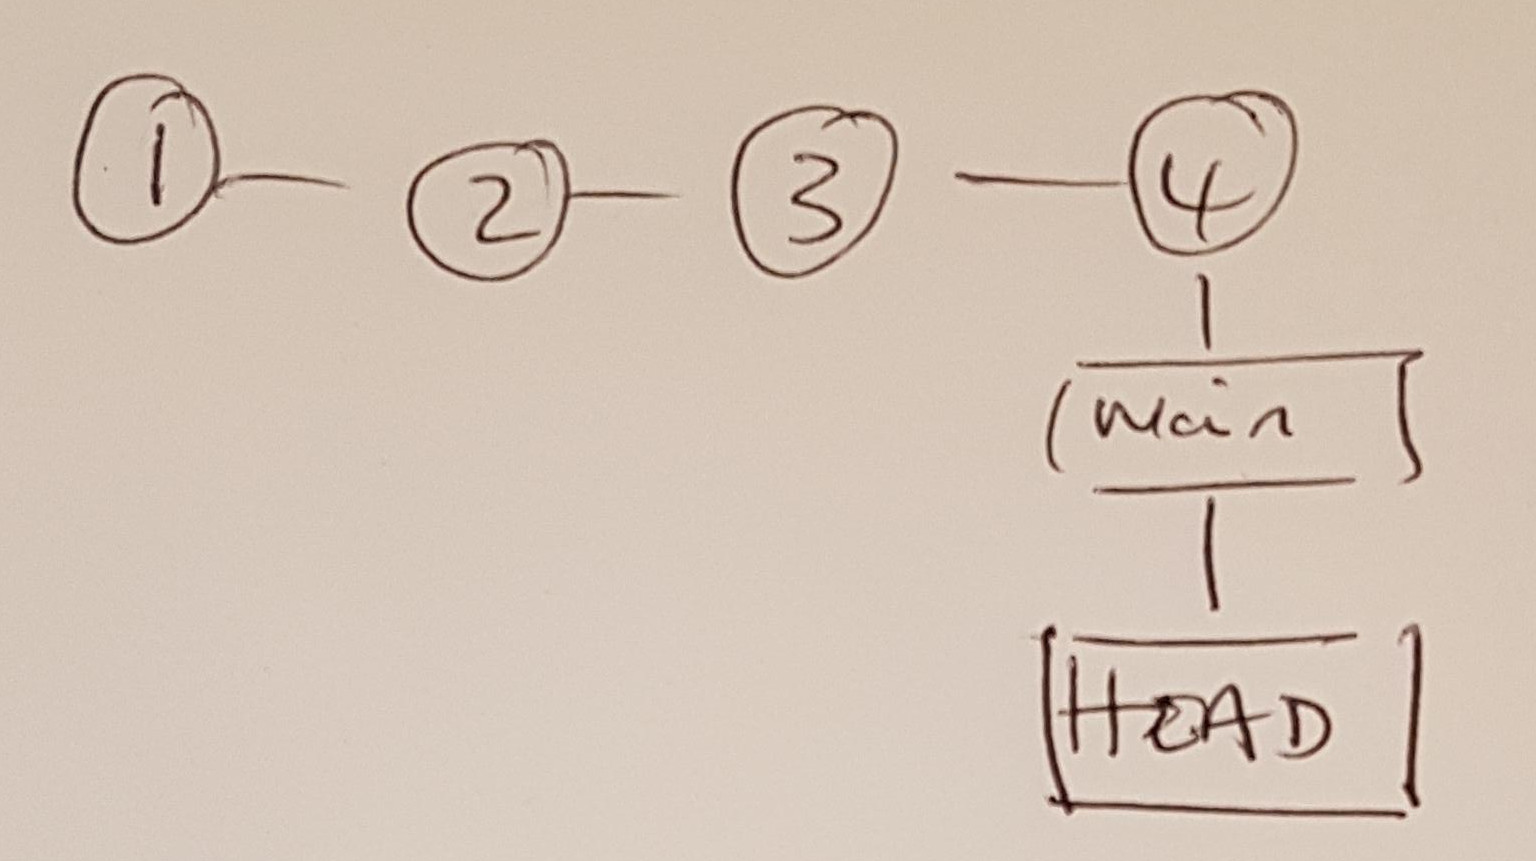 1 2 3 4
Main
HEAD